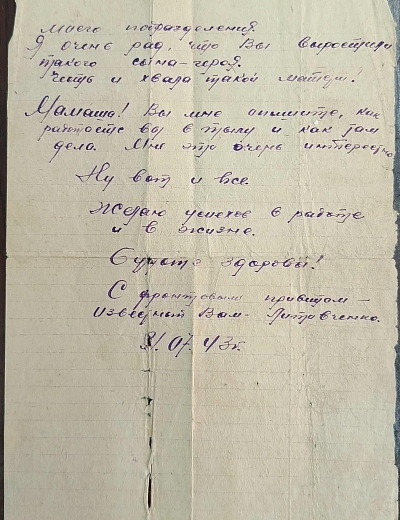 моего подразделения.
Я очень рад, что Вы вырастили
такого сына-героя.
Честь и хвала такой матери!
Мамаша! Вы мне опишите, как
работаете вы в тылу и как там
дела. Мне это очень интересно
Ну вот и все.
Желаю успехов в работе
и в жизни.
Будьте здоровы!
С фронтовым приветом –
Известный Вам – Литовченко.
31.07.43г.